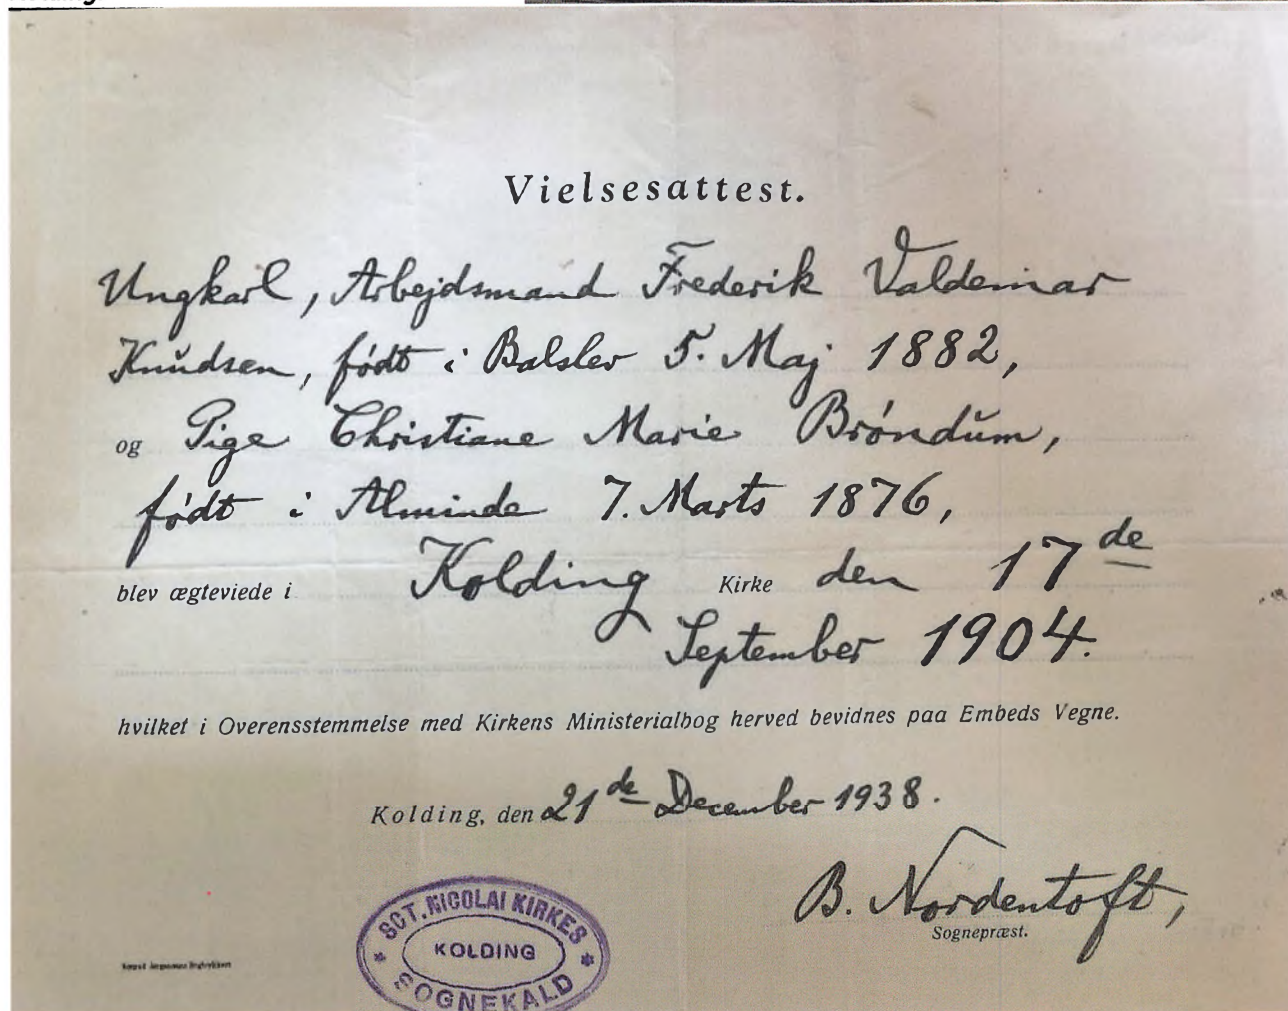 Vielsesattest.
Ungkarl, Arbejdsmand Frederik Valdemar
Knŭdsen, født i Balslev 5. Maj 1882,
og Pige Christiane Marie Brøndŭm,
født i Alminde 7. Marts 1876,
blev ægteviede i Kolding Kirke den 17de
September 1904.
hvilket i Overensstemmelse med Kirkens Ministerialbog herved bevidnes paa Embeds Vegne.
Kolding, den 21de December 1938.
B. Nordentoft,
Sognepræst.
SCT. NICOLAI KIRKES
KOLDING
SOGNEKALD